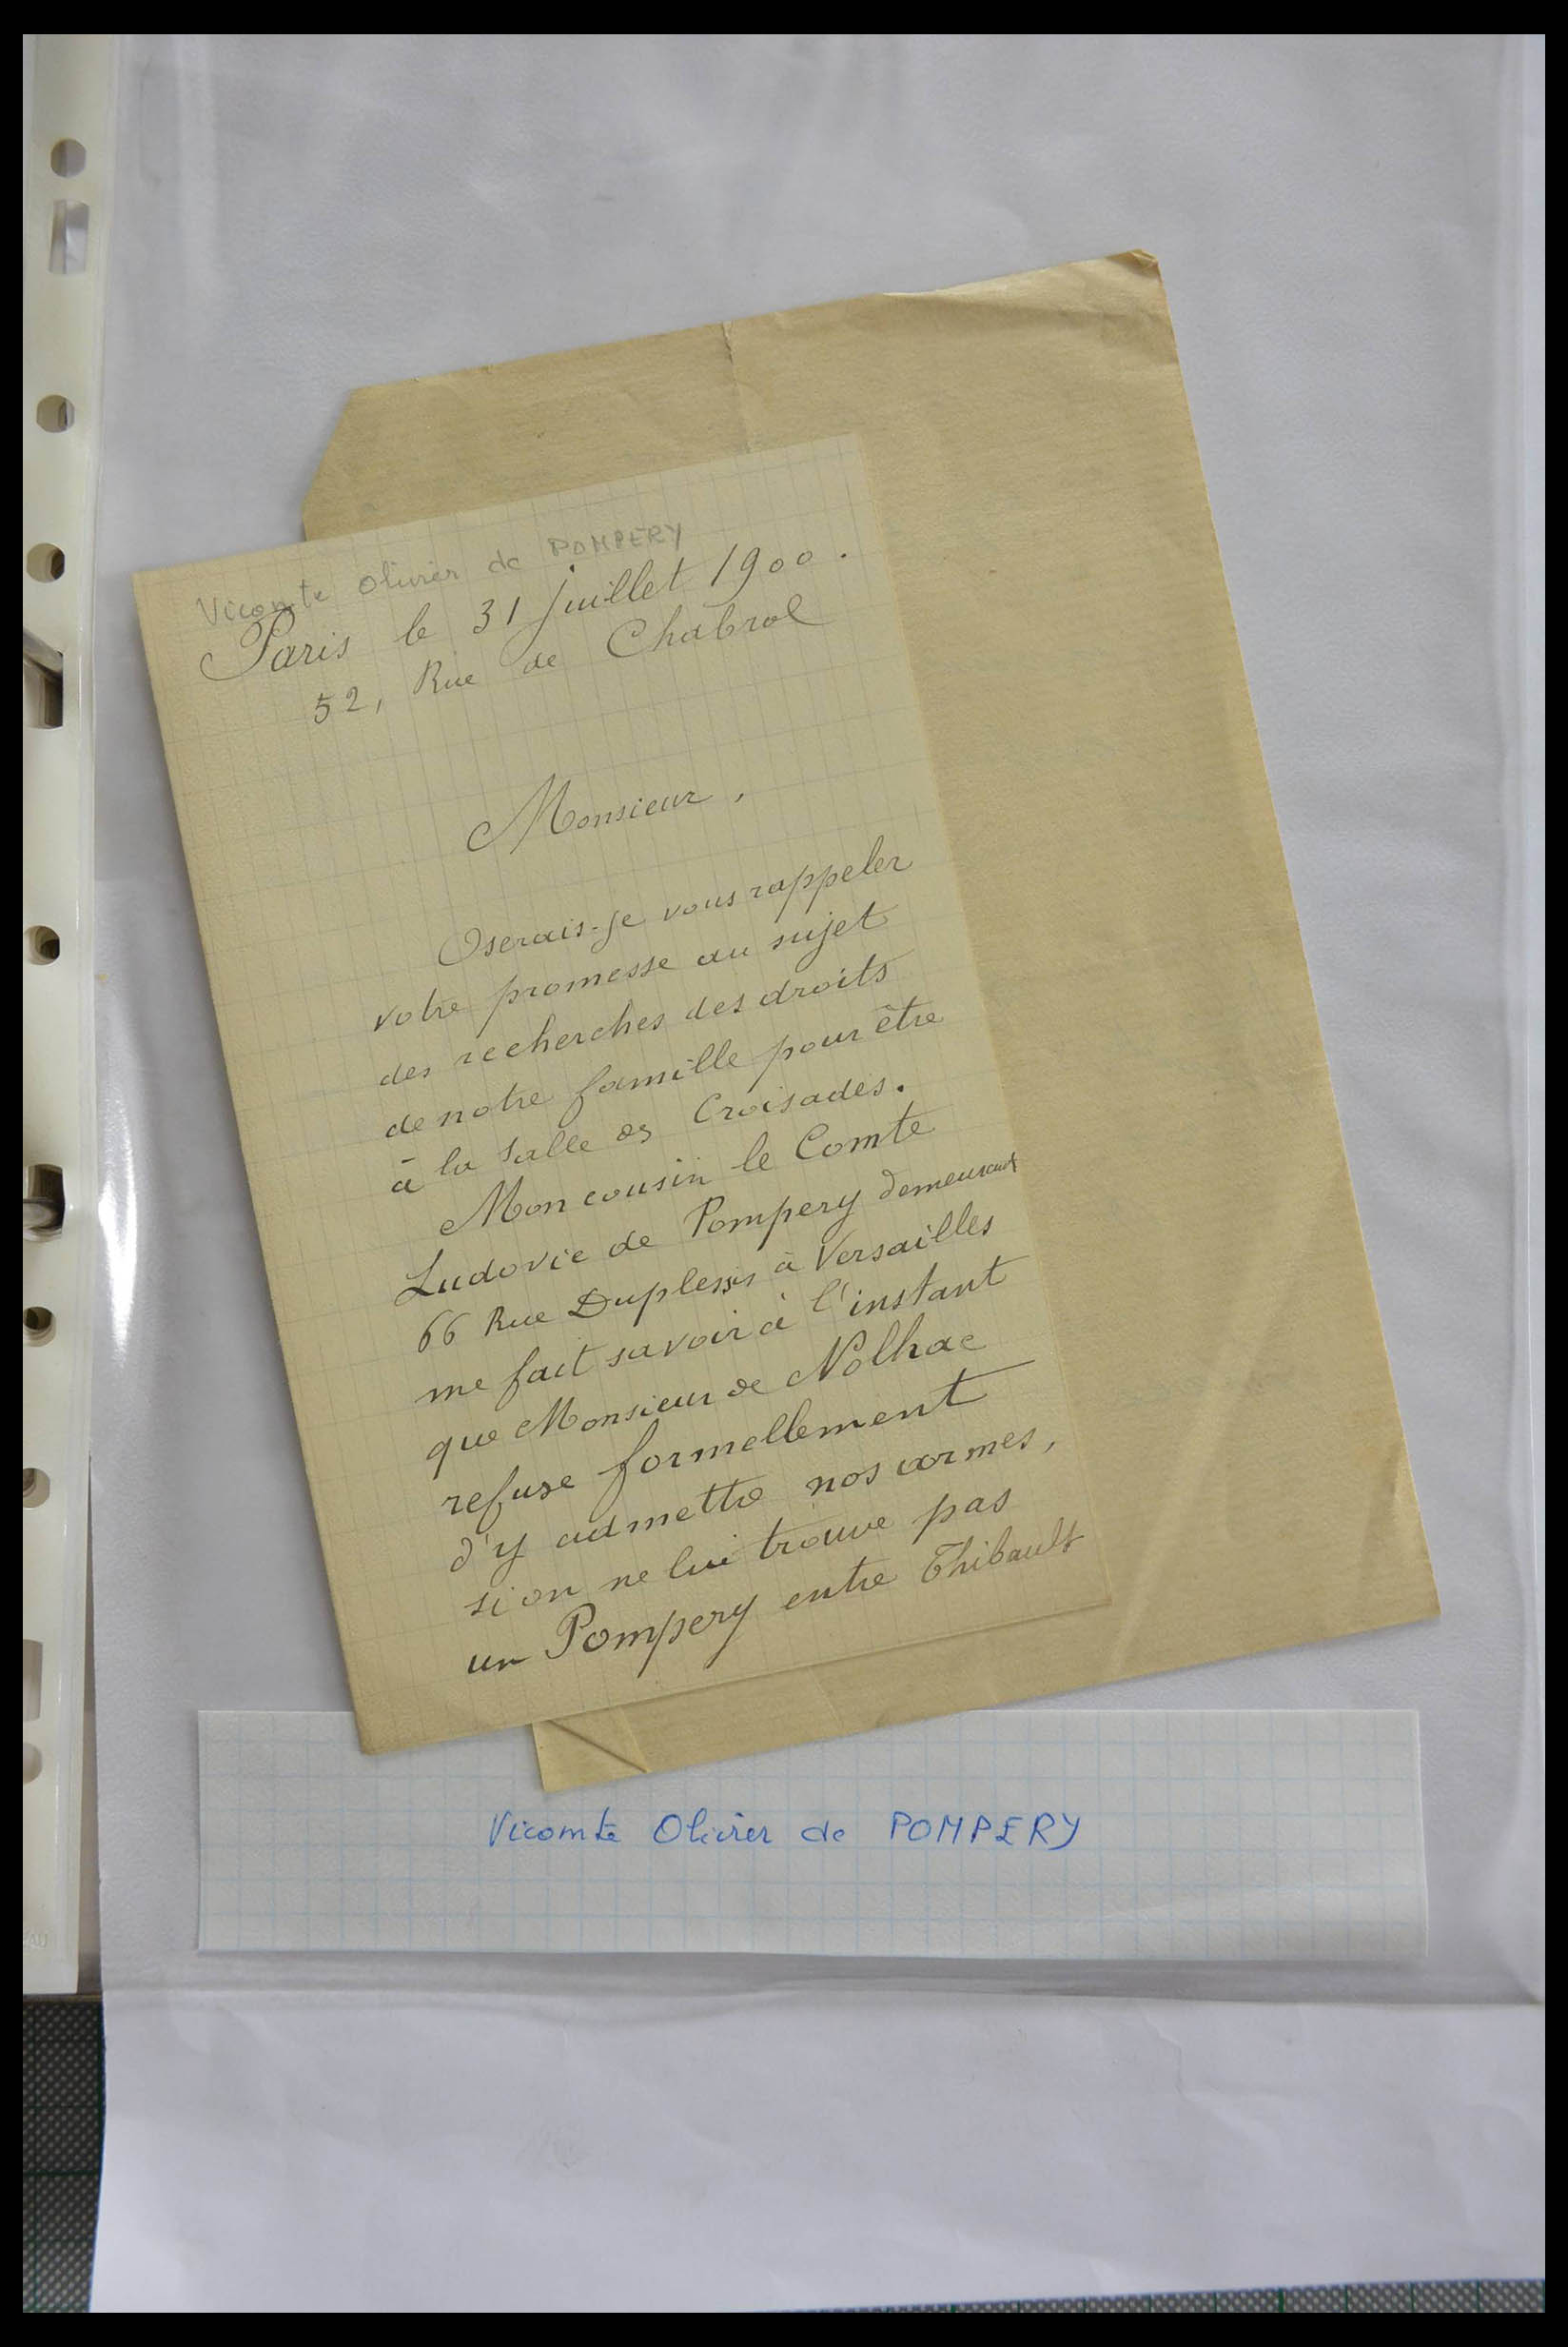 Vicomte Olivier de POMPERY
Paris le 31 juillet 1900.
52, Rue de Chabrol
Monsieur,
Oserais-je vous rappeler
votre promesse au sujet
des recherches des droits
de notre famille pour être
à la salle des Croisades.
Mon cousin le Comte
Ludovic de Pompery demeurant
66 Rue Duplessis à Versailles
me fait savoir à l'instant
que Monsieur de Nolhac
refuse formellement
d'y admettre nos armes,
si on ne lui trouve pas
un Pompery entre Thibault
Vicomte Olivier de POMPERY